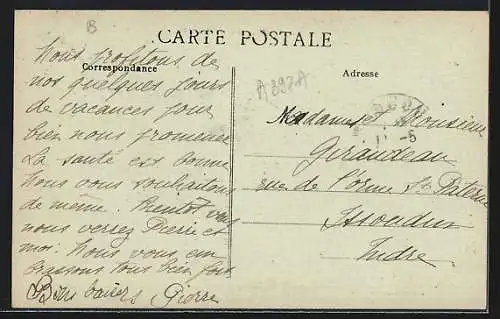 B
CARTE POSTALE
Correspondance
Adresse
Nous profitons de
nos quelques jours
de vacances pour
bien nous promener
La santé est bonne
Nous vous souhaitons
de même. Bientôt vous
nous verrez Pierre et
moi. Nous vous em
brassons tous bien fort
Bons baisers Pierre
A397A
Madame et Monsieur
Giraudeau
rue de l'Orme St Paterne
Issoudun
Indre